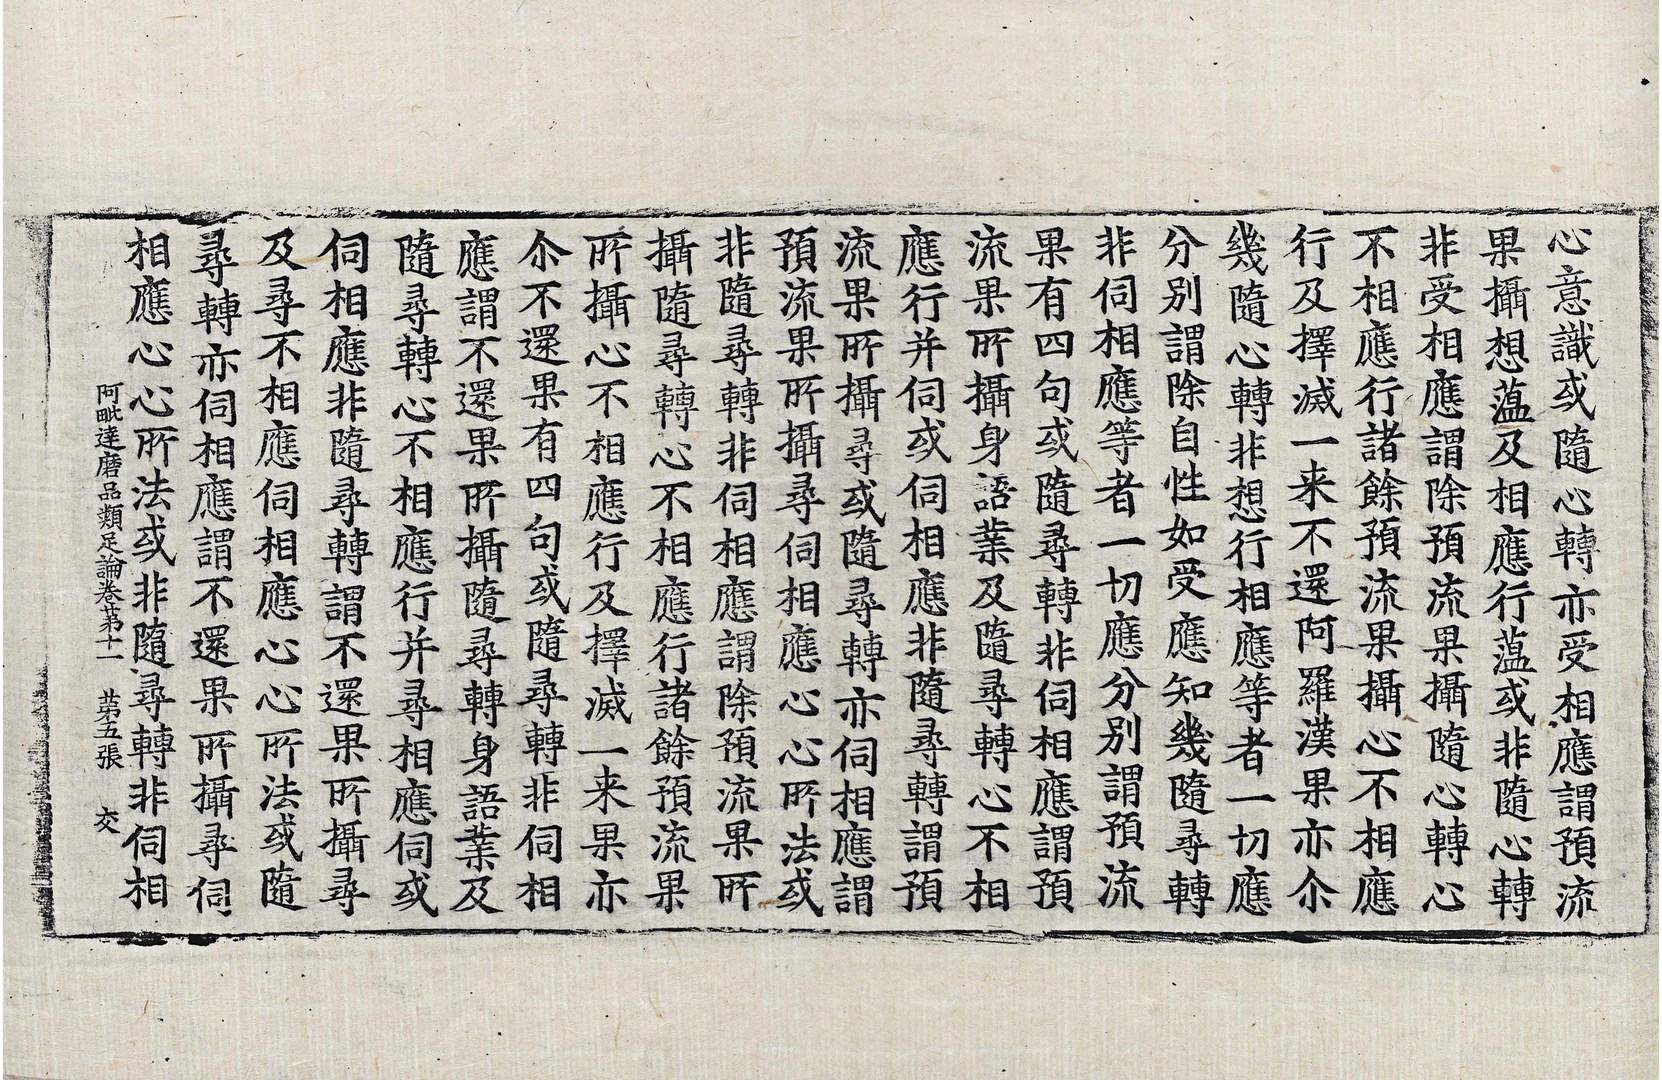 心意識或隨心轉亦受相應謂預流
果攝想薀及相應行薀或非隨心轉
非受相應謂除預流果攝隨心轉心
不相應行諸餘預流果攝心不相應
行及擇滅一来不還阿羅漢果亦尒
幾隨心轉非想行相應等者一切應
分别謂除自性如受應知幾隨尋轉
非伺相應等者一切應分别謂預流
果有四句或隨尋轉非伺相應謂預
流果所攝身語業及隨尋轉心不相
應行并伺或伺相應非隨尋轉謂預
流果所攝尋或隨尋轉亦伺相應謂
預流果所攝尋伺相應心心所法或
非隨尋轉非伺相應謂除預流果所
攝隨尋轉心不相應行諸餘預流果
所攝心不相應行及擇滅一来果亦
尒不還果有四句或隨尋轉非伺相
應謂不還果所攝隨尋轉身語業及
隨尋轉心不相應行并尋相應伺或
伺相應非隨尋轉謂不還果所攝尋
及尋不相應伺相應心心所法或隨
尋轉亦伺相應謂不還果所攝尋伺
相應心心所法或非隨尋轉非伺相
阿毗達磨品類足論卷苐十一 苐五張 交